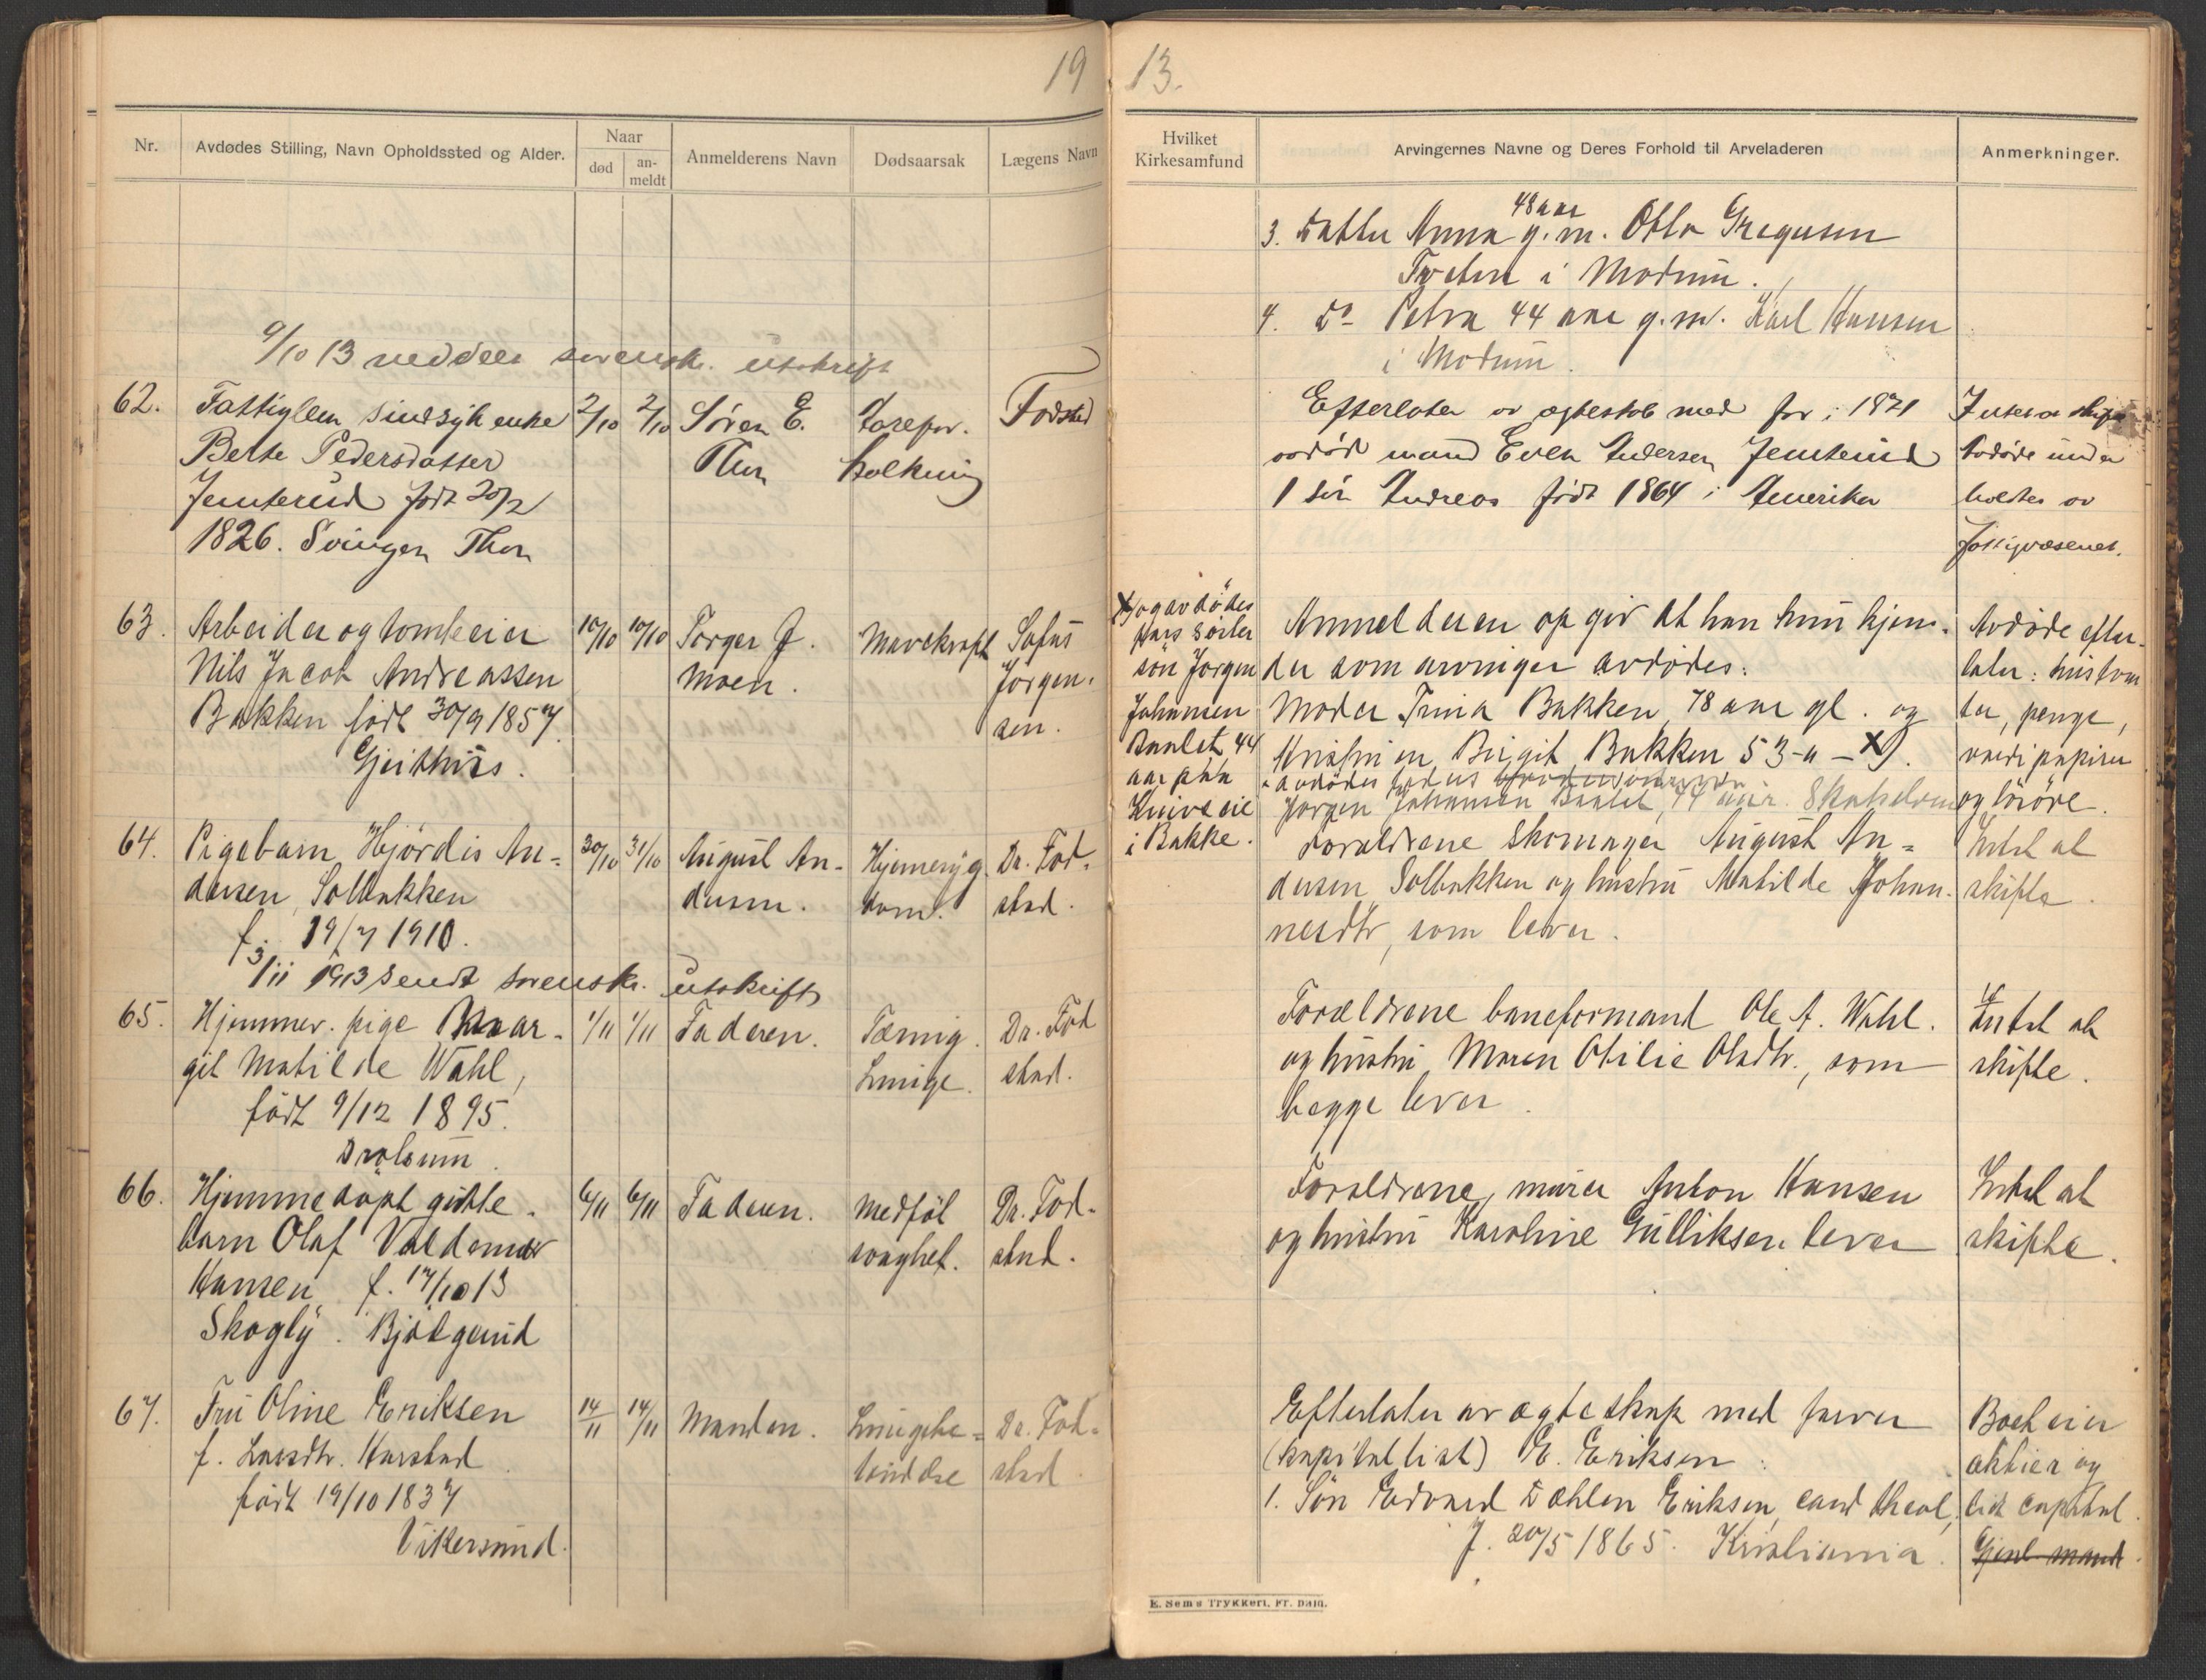 19
Nr.
Avdødes Stilling, Navn Opholdssted og Alder.
Naar
død
an-
meldt
Anmelderens Navn
Dødsaarsak
Lægens Navn
9/10 13 meddelt sorensk. utskrift
62.
Fattiglem sindsyk enke
Berte Pedersdatter
Jemterud født 20/2
1826. Svingen Thon
2/10
2/10
Søren E.
Thon
Fodstad
63.
Arbeider og tomteeier
Nils Jacob Andreassen
Bakken født 30/9 1857
Gjeithus.
10/10
10/10
Torger J.
Moen.
Mavekræft
Sofus
Jørgen-
sen.
64.
Pigebarn Hjørdis An-
dersen, Solbakken
f. 19/7 1910.
30/10
31/10
August An-
dersen.
Dr. Fod-
stad.
3/11 1913 sendt sorensk. utskrift
65.
Hjemmev. pige Maar-
git Matilde Wahl,
født 9/12 1895.
Drolsum.
1/11
1/11
Faderen.
Tæring
Lunge.
Dr. Fod
stad.
66.
Hjemmedøpt gutte-
barn Olaf Valdemar
Hansen f. 17/10 13
Skogly. Bjølgerud
6/11
6/11
Faderen.
Medføt
svaghet.
Dr. Fod-
stad.
67.
Fru Oline Eriksen
f. Larsdtr. Harstad
født 19/10 1837
Vikersund.
14/11
14/11
Manden.
Lungebe-
tændelse
Dr. Fod-
stad.
13.
Hvilket
Kirkesamfund
Arvingernes Navne og Deres Forhold til Arveladeren
Anmerkninger.
48 aar
3. Datter Anna g.m. Otto Gregersen
Tveten i Modum.
4. Do Petra 44 aar g.m. Karl Hansen
i Modum.
Efterlater av egteskab med før i 1871
avdød mand Even Andersen Jemterud
1 søn Andreas født 1864 i Amerika
Intet at skifte
Avdøde under
holdtes av
Fattigvæsenet.
X) og avdødes
søn Jørgen
Johansen
Baalet 44
aar paa
Kniveeie
i Bakke.
Anmelderen opgiv at han kun kjen-
der som arvinger avdødes:
Moder Trina Bakken, 78 aar gl. og
Hustruen Birgit Bakken 53 a - X).
Jørgen Johansen Baalet, 44 aar.
Avdøde efter-
later: hustom
ter, penge,
værdipapirer
og løsøre.
Forældrene skomager August An-
dersen Solbakken og hustru Matilde Johan-
nesdtr, som lever.
Intet at
skifte.
Forældrene baneformand Ole A. Wahl.
og hustru Maren Otilie Olsdtr., som
begge lever.
Intet at
skifte.
Forældrene, murer Anton Hansen
og hustru Karoline Gulliksen lever
Intet at
skifte.
Efterlater av egteskap med farver
(kapitalist) E. Eriksen:
1. Søn Edvard Dahlen Eriksen, cand theol,
f. 20/5 1865. Kristiania.
Boet eier
aktier og
litt capital.
Gjenl. mand
E. Sems Trykkeri, Fr. hald.